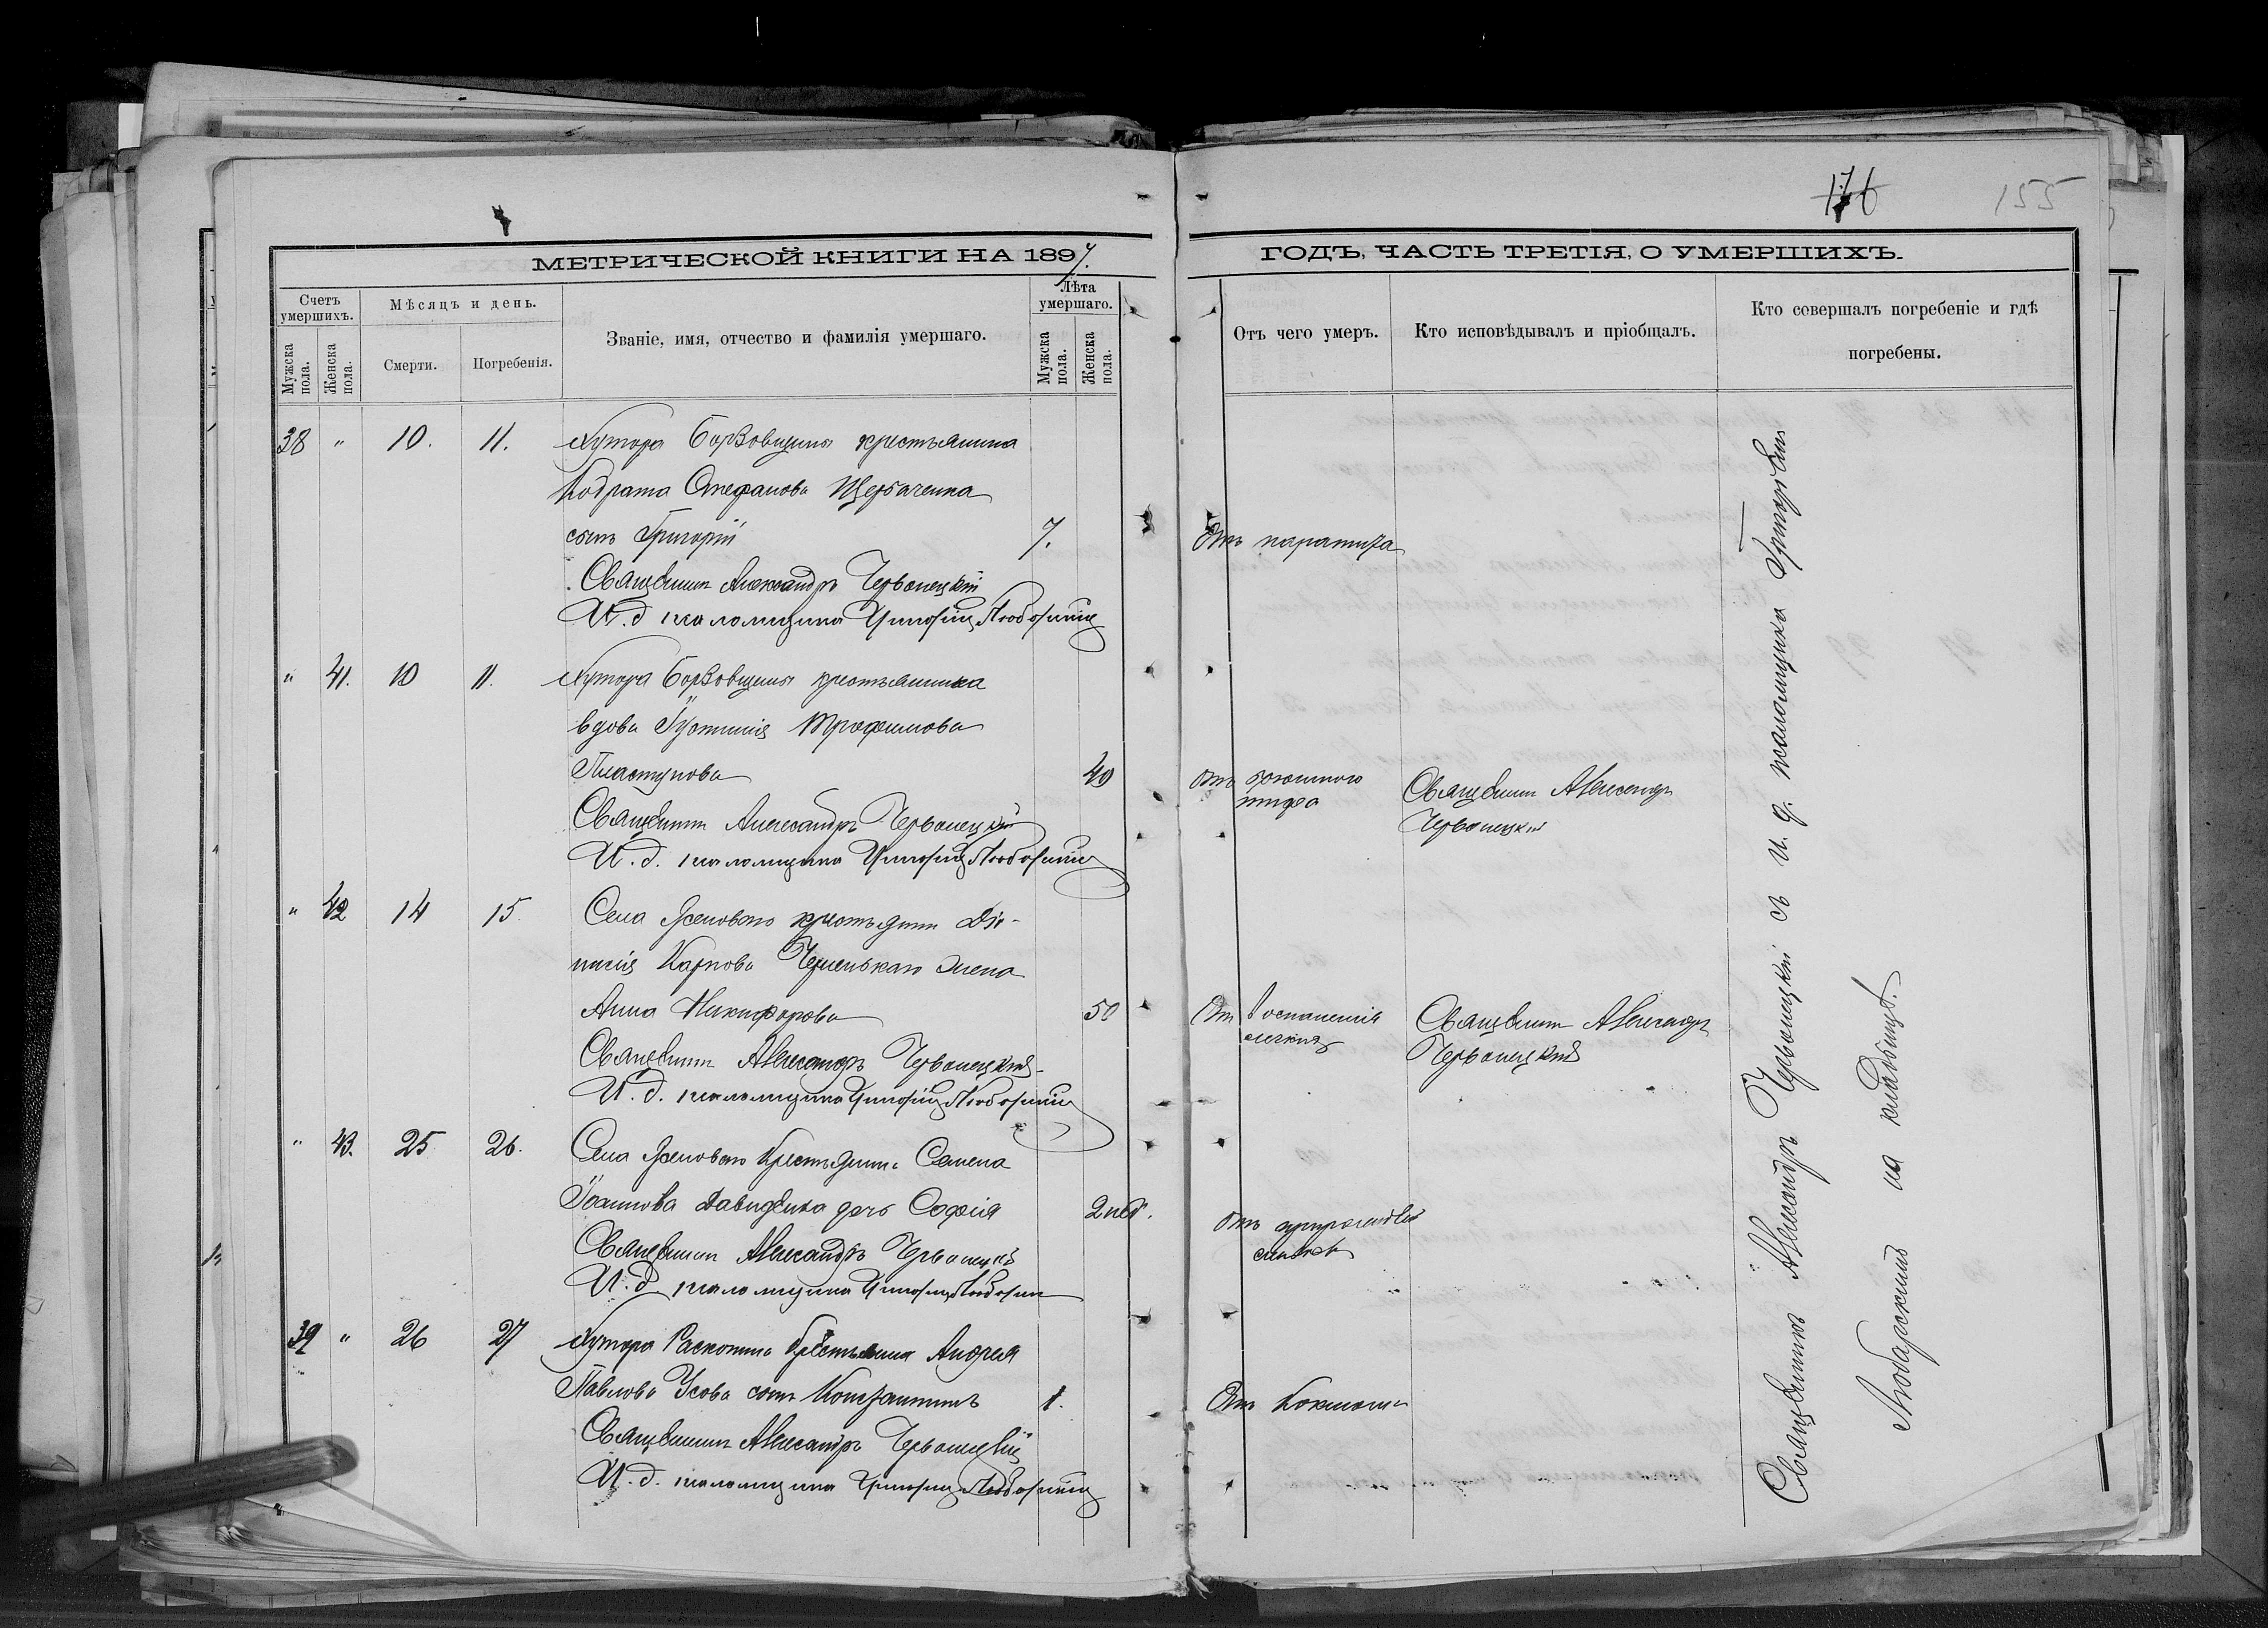 176
155
МЕТРИЧЕСКОЙ КНИГИ НА 1897.
ГОДЪ, ЧАСТЬ ТРЕТІЯ, О УМЕРШИХЪ.
Счетъ умершихъ.
Мѣсяцъ и день.
Званіе, имя, отчество и фамилія умершаго.
Лѣта умершаго.
Мужска пола.
Женска пола.
Смерти.
Погребенія.
Мужска пола.
Женска пола.
Отъ чего умеръ.
Кто исповѣдывалъ и пріобщалъ.
Кто совершалъ погребеніе и гдѣ
погребены.
38 " 10. 11. Хутора крестьянина
Кодрата Стефанова Щербаченка
сынъ Григорій 7. Отъ
Священникъ Александръ Червонецкій
И. д. псаломщика
" 41. 10 11. Хутора крестьянина
вдова Іустинія Трофимова
Пластунова 40 отъ брюшного тифа Священникъ Александръ
Червонецкій
Священникъ Александръ Червонецкій
И. д. псаломщика
" 42 14 15. Села Ясеноваго крестьянина Діо-
нисія Карпова жена
Анна Никифорова 50 Отъ воспаленія легкихъ Священникъ Александръ
Червонецкій
Священникъ Александръ Червонецкій
И. д. псаломщика
" 43. 25 26. Села Ясеноваго Крестьянина Семена
Іоаннова Давиденка дочь Софія 2 нед. отъ слабости
Священникъ Александръ Червонецкій
И. д. псаломщика
39 " 26 27 Хутора крестьянина Андрея
Павлова Усова сынъ Константинъ 1. Отъ Коклюша
Священникъ Александръ Червонецкій
И. д. псаломщика
Священникъ Александръ Червонецкій съ и. д. псаломщика Григоріемъ
на кладбищѣ.